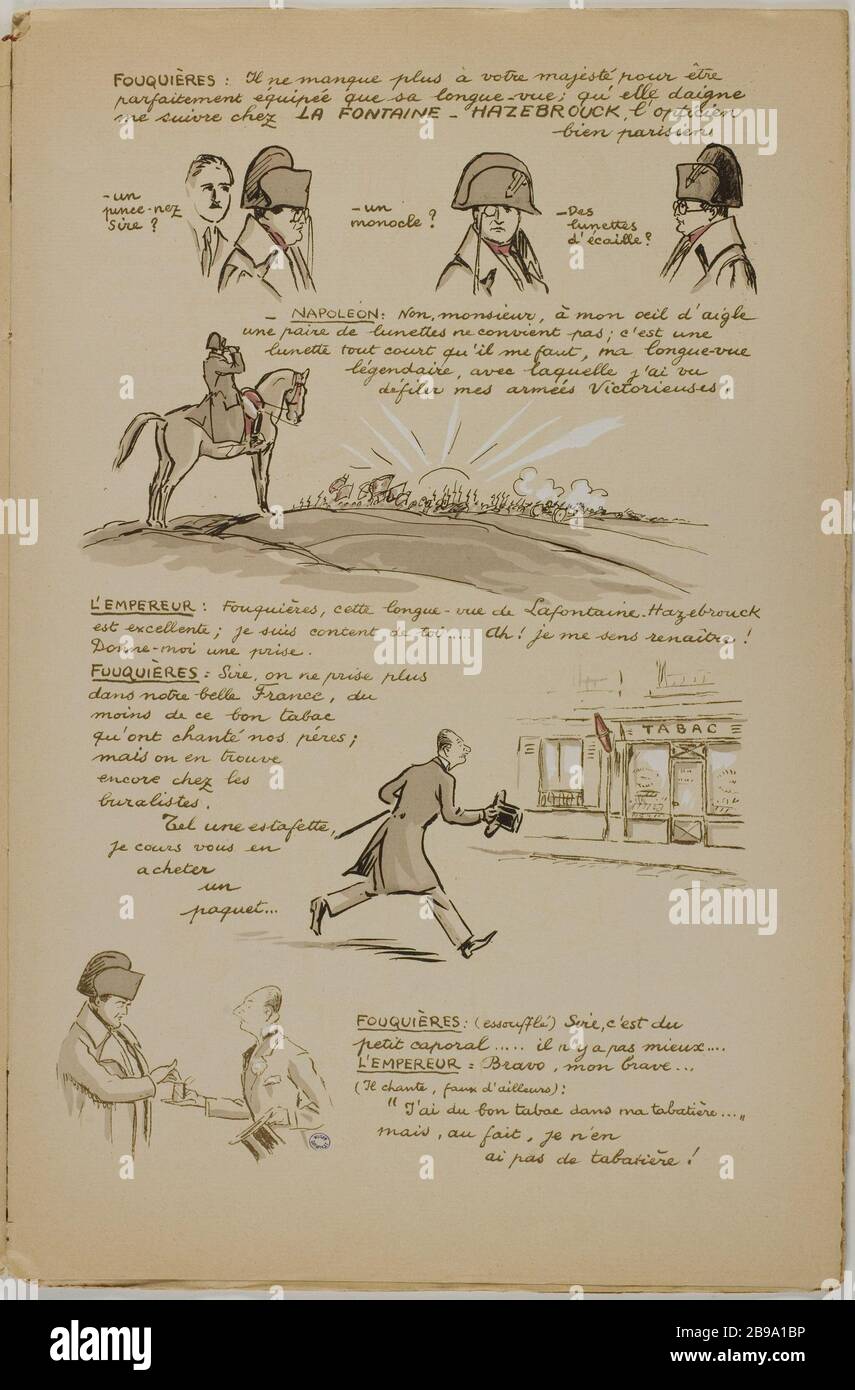 FOUQUIÈRES : Il ne manque plus à votre majesté pour être
parfaitement équipée que sa longue-vue ; qu'elle daigne
me suivre chez LA FONTAINE - HAZEBROUCK, l'opticien
bien parisien,
- un
pince-nez
Sire ?
- un
monocle ?
- Des
lunettes
d'écaille ?
- NAPOLÉON : Non, monsieur, à mon oeil d'aigle
une paire de lunettes ne convient pas ; c'est une
lunette tout court qu'il me faut, ma longue-vue
légendaire, avec laquelle j'ai vu
défiler mes armées Victorieuses.
L'EMPEREUR : Fouquières, cette longue-vue de Lafontaine-Hazebrouck
est excellente ; je suis content de toi..... Ah ! je me sens renaître !
Donne-moi une prise.
FOUQUIÈRES : Sire, on ne prise plus
dans notre belle France, du
moins de ce bon tabac
qu'ont chanté nos pères ;
mais on en trouve
encore chez les
buralistes.
Tel une estafette,
je cours vous en
acheter
un
paquet...
TABAC
FOUQUIÈRES : (essoufflé) Sire, c'est du
petit caporal..... il n'y a pas mieux....
L'EMPEREUR = Bravo, mon brave...
(Il chante, faux d'ailleurs) :
"J'ai du bon tabac dans ma tabatière..."
mais, au fait, je n'en
ai pas de tabatière !
alamy
Image ID: 2B9A1BP
www.alamy.com